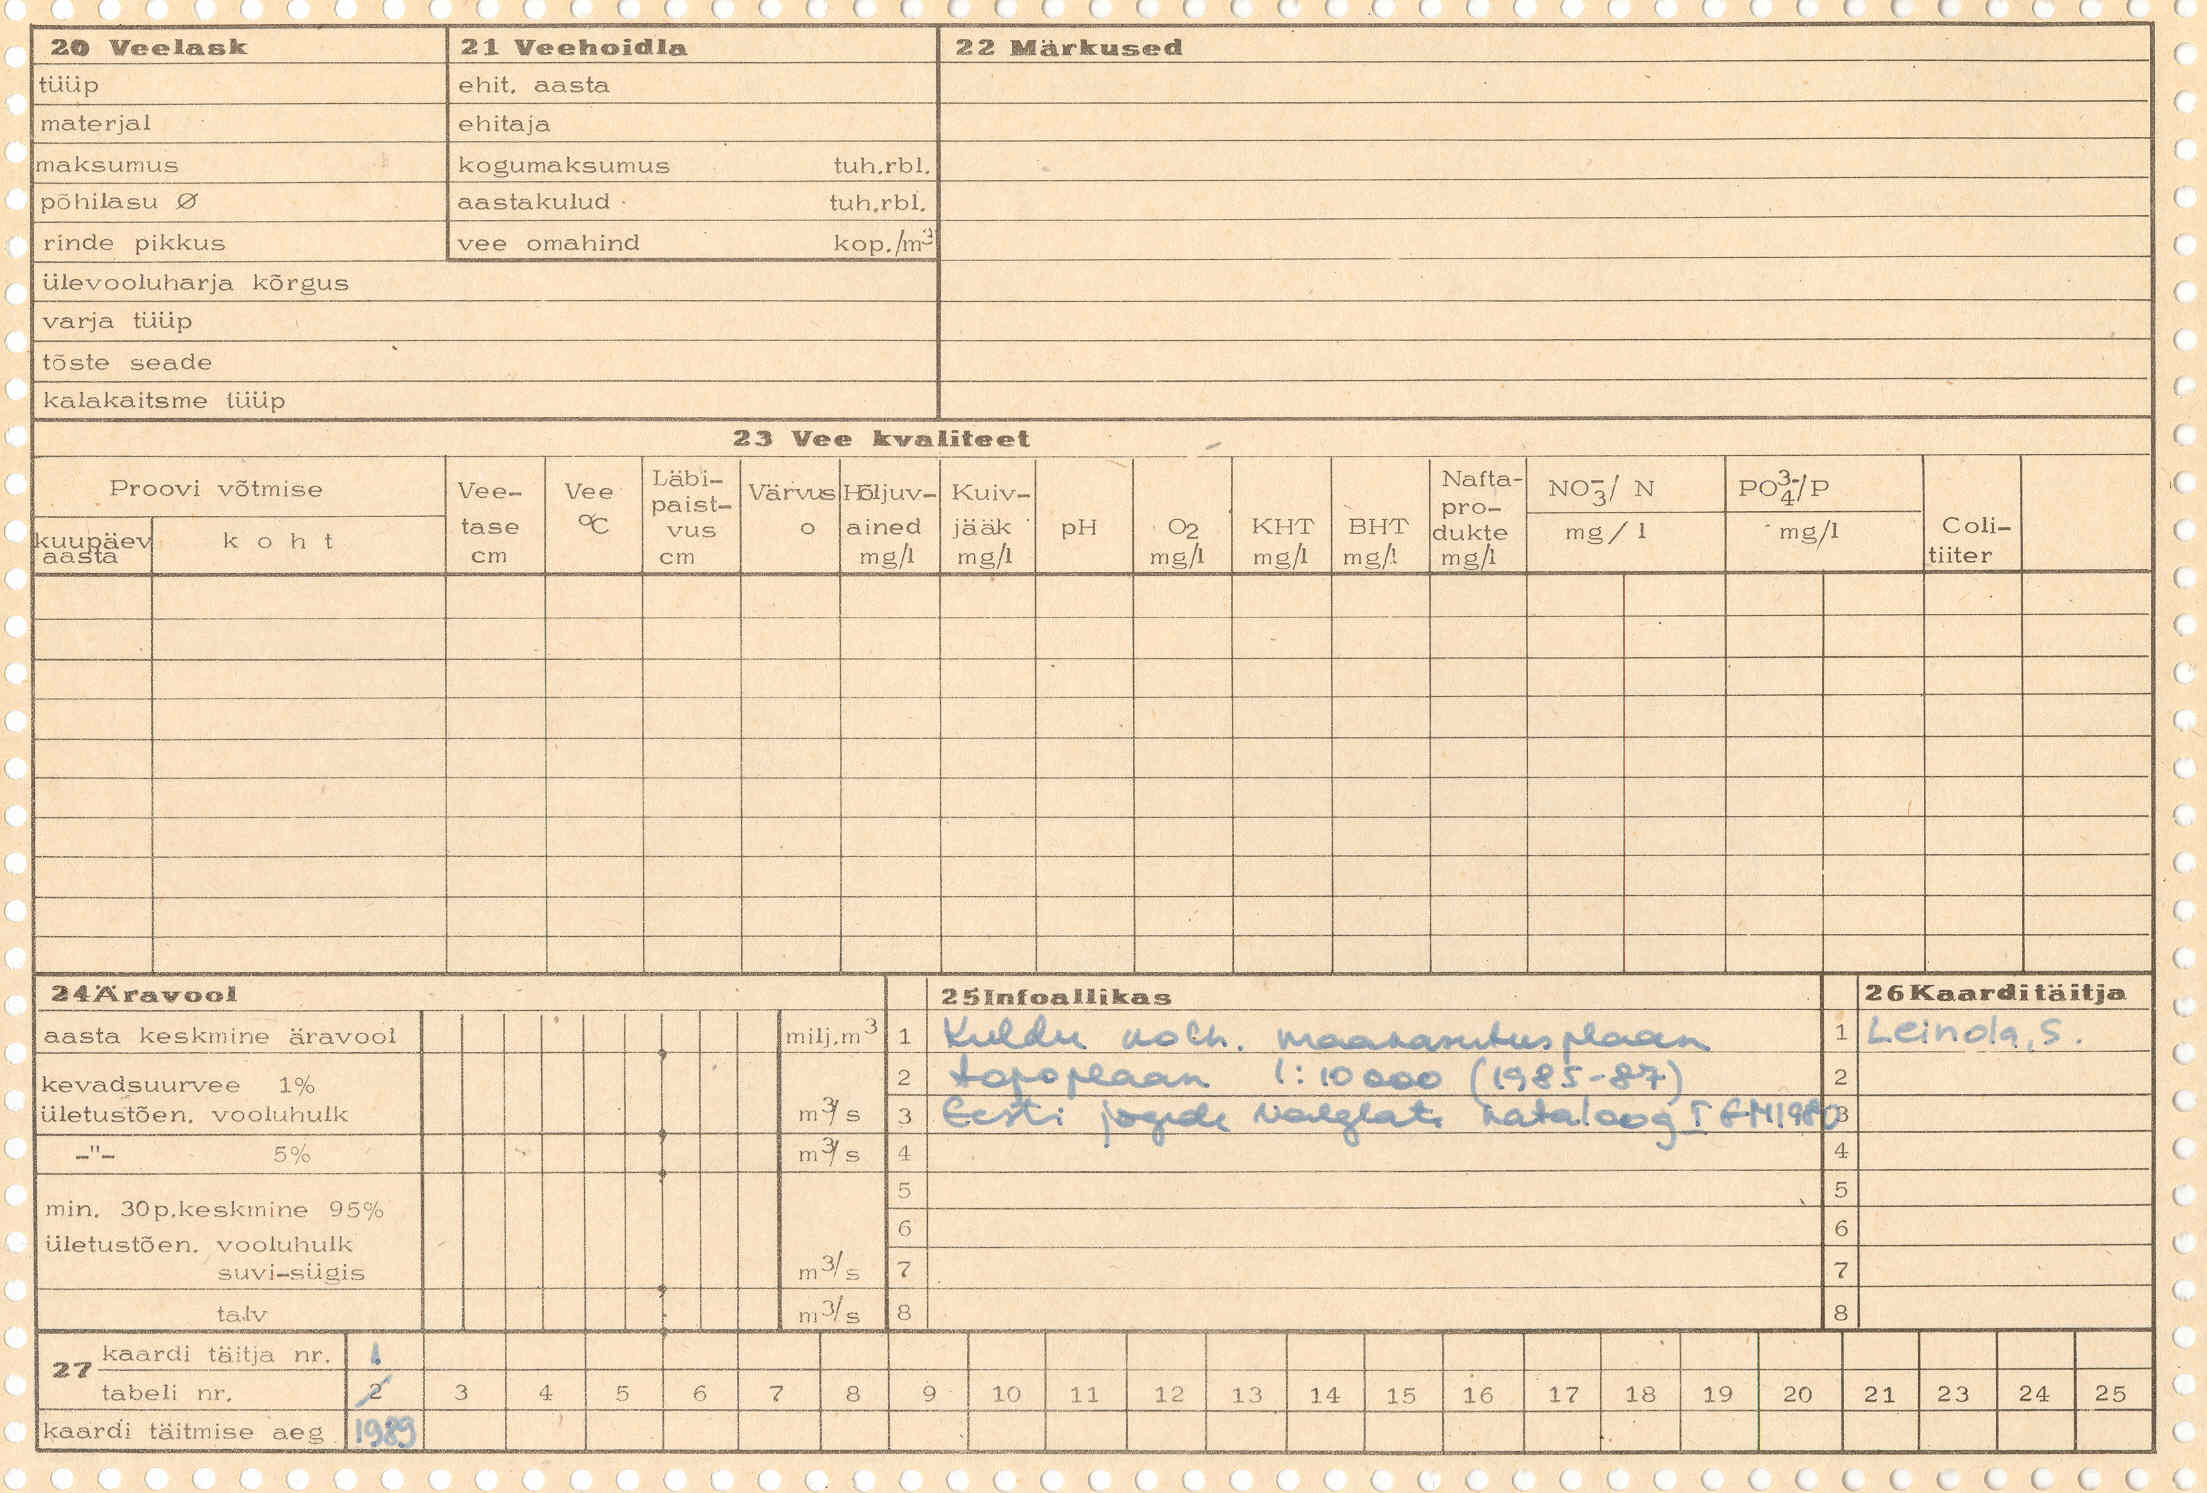 20 Veelask
tüüp
materjal
maksumus
põhilasu Ø
rinde pikkus
ülevooluharja kõrgus
varja tüüp
tõste seade
kalakaitsme tüüp
21 Veehoidla
ehit. aasta
ehitaja
kogumaksumus tuh.rbl.
aastakulud tuh.rbl.
vee omahind kop./m³
22 Märkused
23 Vee kvaliteet
Proovi võtmise
kuupäev
aasta
koht
Vee-
tase
cm
Vee
°C
Läbi-
paist-
vus
cm
Värvus
o
Hõljuv-
ained
mg/l
Kuiv-
jääk
mg/l
pH
O2
mg/l
KHT
mg/l
BHT
mg/l
Nafta-
pro-
dukte
mg/l
NO₃⁻/ N
mg/l
PO₄³⁻/P
mg/l
Coli-
tiiter
24 Äravool
aasta keskmine äravool milj.m³
kevadsuurvee 1%
ületustõen. vooluhulk m³/s
-"- 5% m³/s
min. 30p.keskmine 95%
ületustõen. vooluhulk
suvi-sügis m³/s
talv m³/s
25 Infoallikas
1 Kuldu kolh. maakasutusplaan
2 topoplaan 1:10000 (1985-87)
3 Eesti jõgede valglate kataloog I 1980
4
5
6
7
8
26 Kaardi täitja
1 Leinola, S.
2
3
4
5
6
7
8
27 kaardi täitja nr. 1.
tabeli nr. 2 3 4 5 6 7 8 9 10 11 12 13 14 15 16 17 18 19 20 21 23 24 25
kaardi täitmise aeg 1989